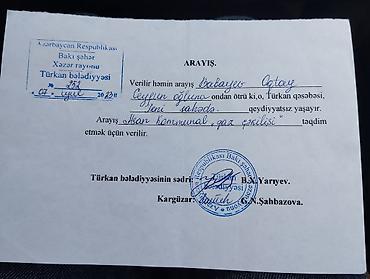 Azərbaycan Respublikası
Bakı şəhər
Xəzər rayonu
Türkan bələdiyyəsi
№ 252
"07" iyul 2023 il
ARAYIŞ.
Verilir həmin arayış Babayev Oqtay
Ceyhun oğluna ondan ötrü ki,o, Türkan qəsəbəsi,
Yeni sahədə. qeydiyyatsız yaşayır.
Arayış kommunal „qaz çəkilişi" təqdim
etmək üçün verilir.
Türkan bələdiyyəsinin sədri: B.X.Yarıyev.
Kargüzar: G.N.Şahbazova.